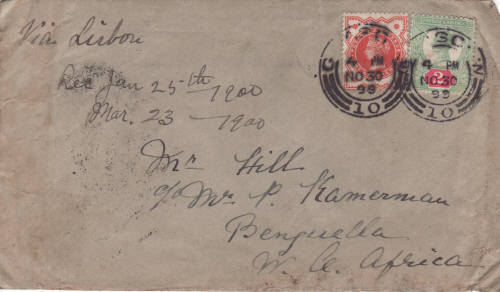 Via Lisbon
Rec Jan 25th 1900
Mar. 23 - 1900
Mr Hill
c/o Mr. P. Kamerman
Benguella
W. C. Africa
4 PM
NO 30
99
10
4 PM
NO 30
99
10